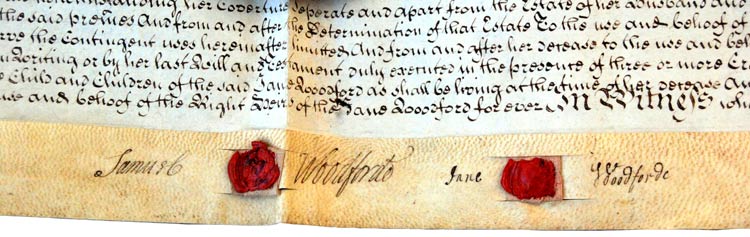 her Coverture Seperate and apart from the Estate of her Husband and
the said premises And from and after the Determination of that Estate To the use and behoof of
the Contingent uses hereinafter limitted And from and after her decease to the use and
in Writing or by her last Will and Testament duly executed in the presence of three or more
Child and Children of the said Jane Woodford as shall be living at the time of her decease And
use and behoof of the Right Heirs of the Jane Woodford for ever In Witness
Samuel Woodforde Jane Woodforde